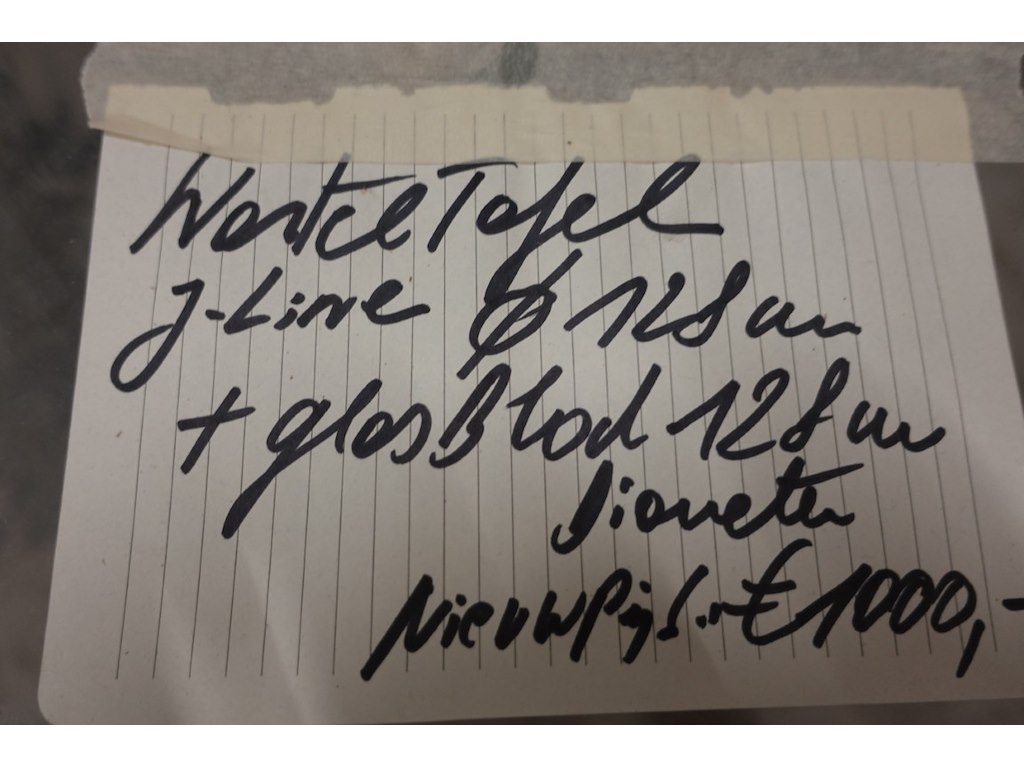 Wortel Tafel
J-Line Ø 128 cm
+ glas Blad 128 cm
Diameter
Nieuw Prijs ... € 1000,-